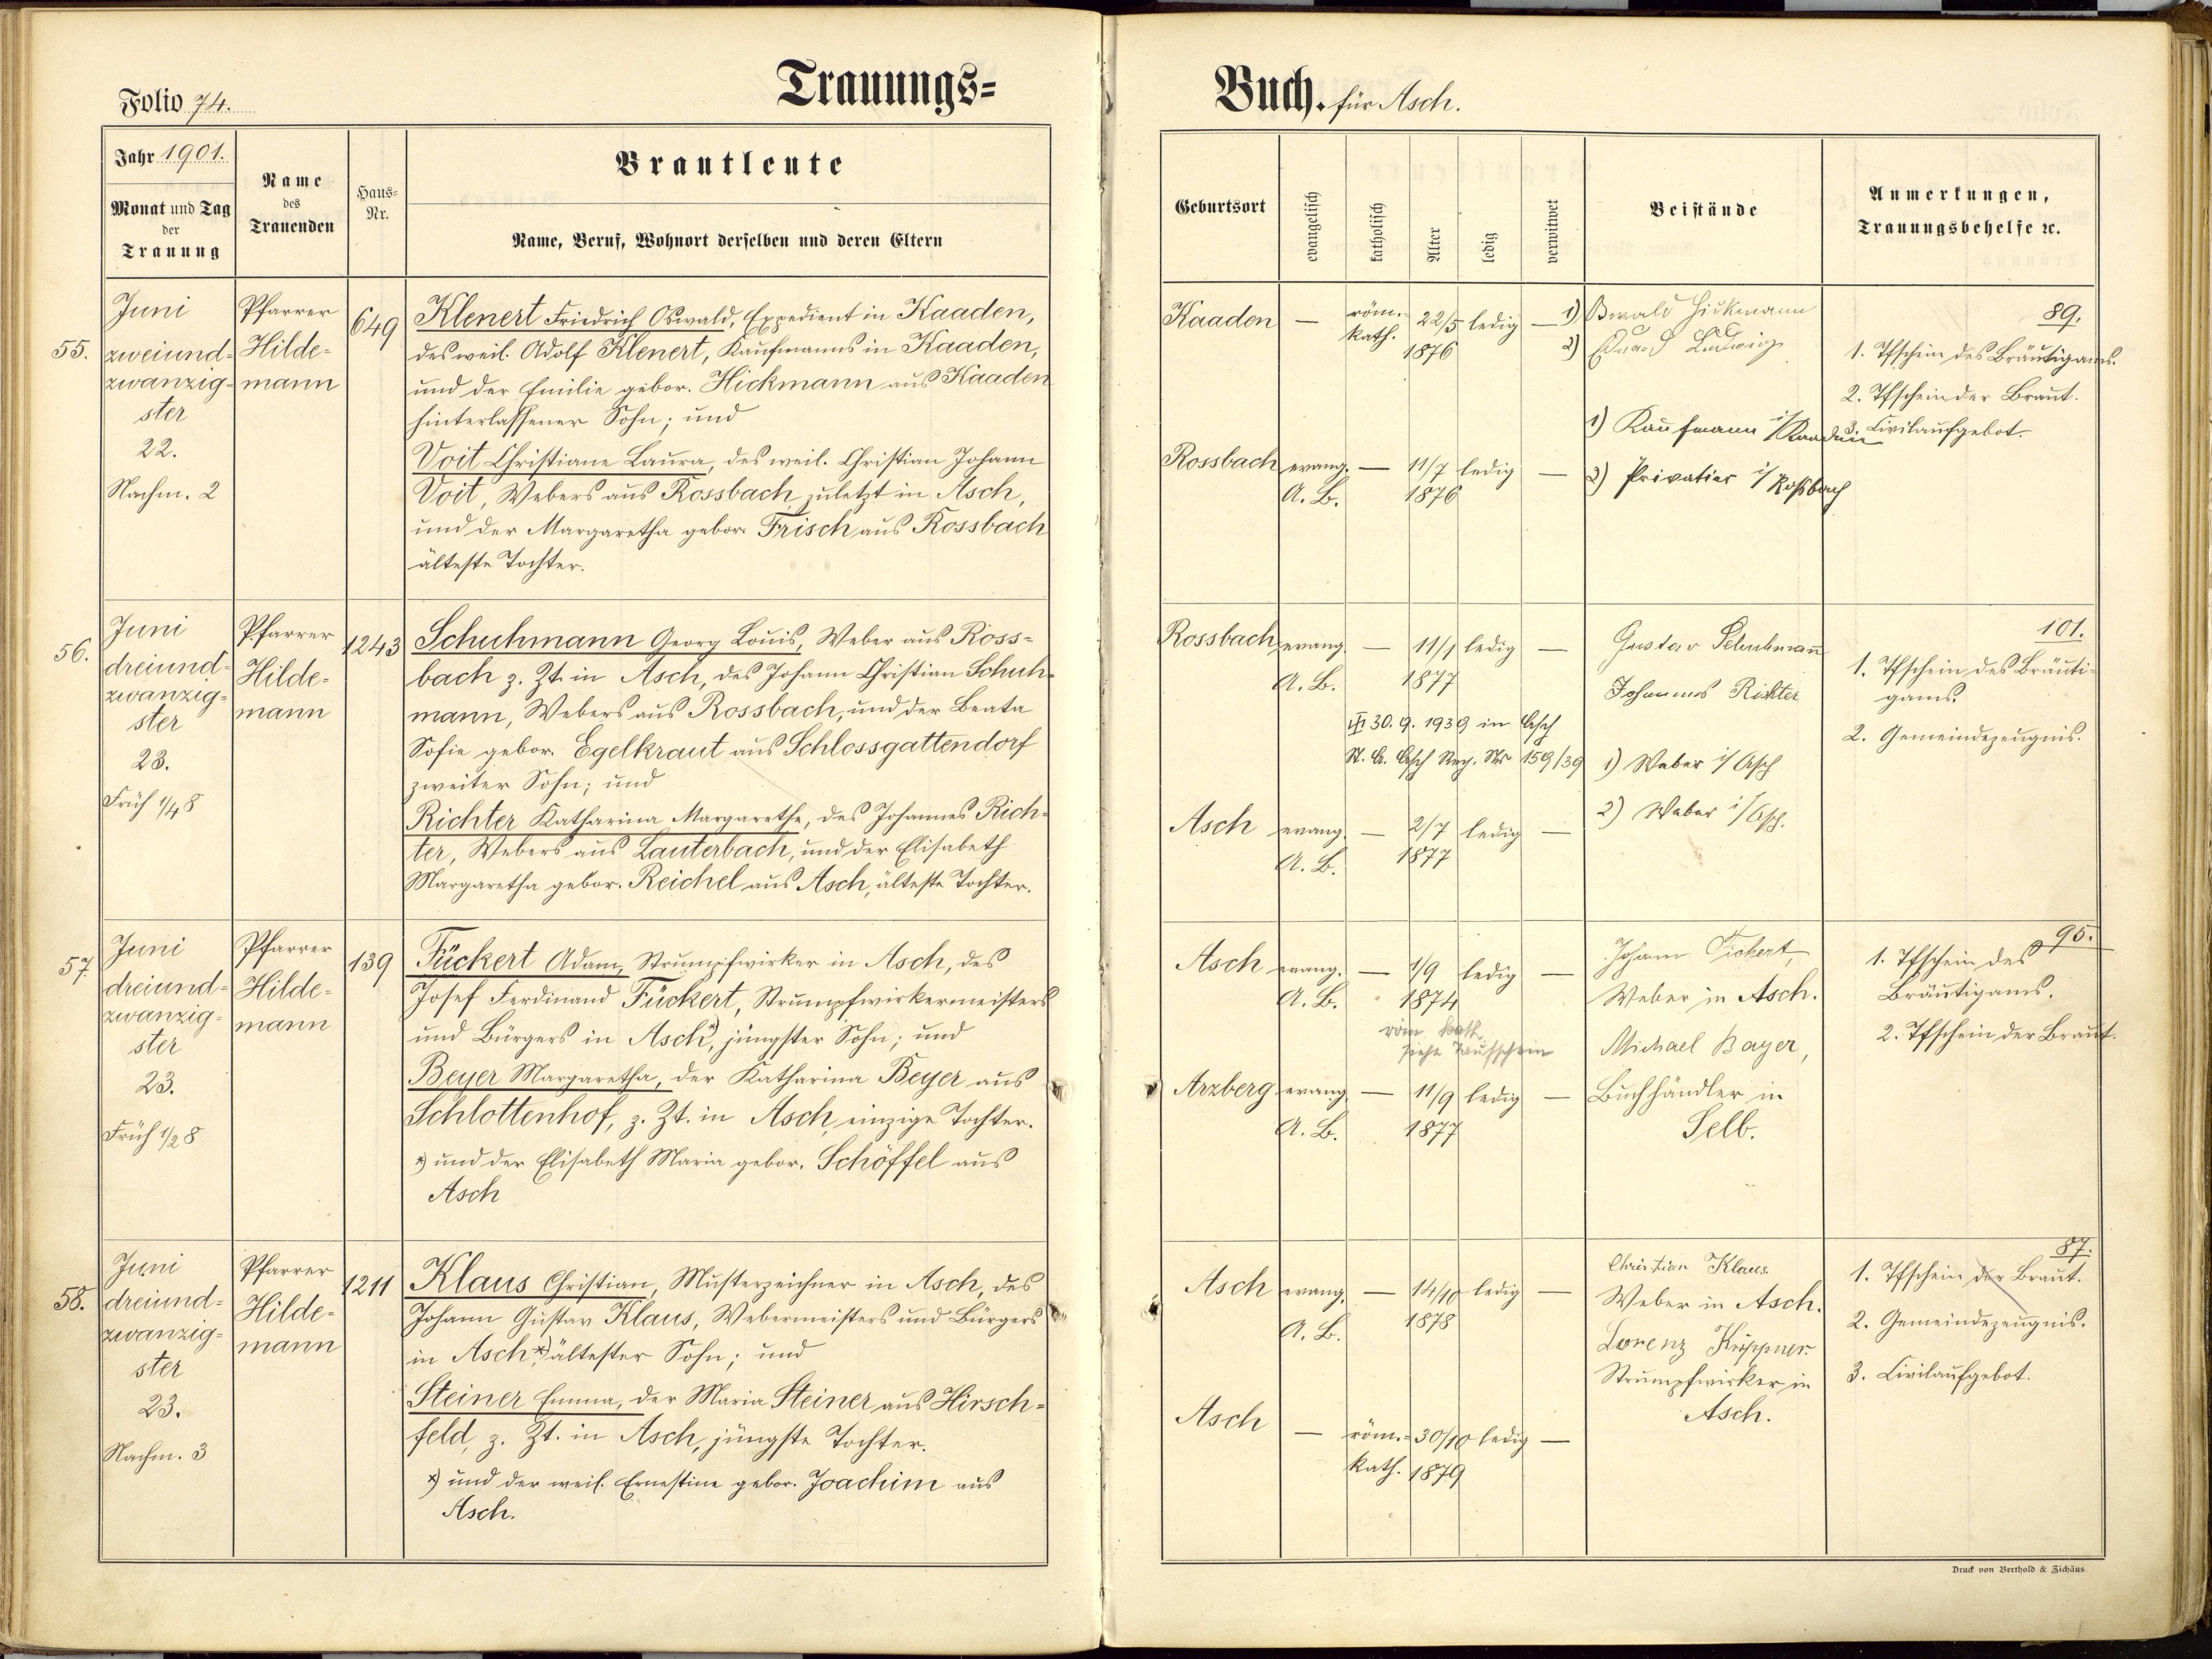 Folio 74.
Trauungs=
Jahr 1901.
Monat und Tag
der
Trauung
Name
des
Trauenden
Haus=
Nr.
Brautleute
Name, Beruf, Wohnort derselben und deren Eltern
55.
Juni
zweiund=
zwanzig=
ster
22.
Nachm. 2
Pfarrer
Hilde=
mann
649
Klenert Friedrich Oswald, Expedient in Kaaden,
des weil. Adolf Klenert, Kaufmanns in Kaaden,
und der Emilie gebor. Hickmann aus Kaaden
hinterlassener Sohn; und
Voit Christiane Laura, des weil. Christian Johann
Voit, Webers aus Rossbach, zuletzt in Asch,
und der Margaretha gebor. Frisch aus Rossbach
älteste Tochter.
56.
Juni
dreiund=
zwanzig=
ster
23.
Früh 1/4 8
Pfarrer
Hilde=
mann
1243
Schuhmann Georg Louis, Weber aus Ross=
bach z. Zt. in Asch, des Johann Christian Schuh=
mann, Webers aus Rossbach, und der Beata
Sofie gebor. Egelkraut aus Schlossgattendorf
zweiter Sohn; und
Richter Katharina Margarethe, des Johannes Rich=
ter, Webers aus Lauterbach, und der Elisabeth
Margaretha gebor. Reichel aus Asch, älteste Tochter.
57
Juni
dreiund=
zwanzig=
ster
23.
Früh 1/2 8
Pfarrer
Hilde=
mann
139
Fückert Adam, Strumpfwirker in Asch, des
Josef Ferdinand Fückert, Strumpfwirkermeisters
und Bürgers in Asch*), jüngster Sohn; und
Beyer Margaretha, der Katharina Beyer aus
Schlottenhof, z. Zt. in Asch, einzige Tochter.
*) und der Elisabeth Maria gebor. Schöffel aus
Asch
58.
Juni
dreiund=
zwanzig=
ster
23.
Nachm. 3
Pfarrer
Hilde=
mann
1211
Klaus Christian, Musterzeichner in Asch, des
Johann Gustav Klaus, Webermeisters und Bürgers
in Asch*), ältester Sohn; und
Steiner Emma, der Maria Steiner aus Hirsch=
feld, z. Zt. in Asch, jüngste Tochter.
*) und der weil. Ernestine gebor. Joachim aus
Asch.
Buch. für Asch.
Geburtsort
evangelisch
katholisch
Alter
ledig
verwitwet
Beistände
Anmerkungen,
Trauungsbehelfe ꝛc.
Kaaden — röm.= 22/5 ledig —
kath. 1876
1) Oswald Hickmann
2) Eduard Ludwig
89.
1. Tfschein des Bräutigams.
2. Tfschein der Braut.
3. Civilaufgebot.
1) Kaufmann i/ Kaaden
Rossbach evang. — 11/7 ledig —
A. B. 1876
2) Privatier i/ Rossbach
Rossbach evang. — 11/1 ledig —
A. B. 1877
Gustav Schuhmann
Johannes Richter
101.
1. Tfschein des Bräuti=
gams.
2. Gemeindezeugnis.
30. 9. 1939 in Asch
St. A. Asch Reg. Nr 159/39
1) Weber i/ Asch
2) Weber i/ Asch.
Asch evang. — 2/7 ledig —
A. B. 1877
Asch evang. — 1/9 ledig —
A. B. 1874
röm kath
siehe Taufschein
Johann Fickert,
Weber in Asch.
Michael Bayer,
Buchhändler in
Selb.
95.
1. Tfschein des
Bräutigams.
2. Tfschein der Braut.
Arzberg evang. — 11/9 ledig —
A. B. 1877
Asch evang. — 14/10 ledig —
A. B. 1878
Christian Klaus.
Weber in Asch.
Lorenz Küppner.
Strumpfwirker in
Asch.
87.
1. Tfschein der Braut.
2. Gemeindezeugnis.
3. Civilaufgebot.
Asch — röm.= 30/10 ledig —
kath. 1879
Druck von Berthold & Zichäus